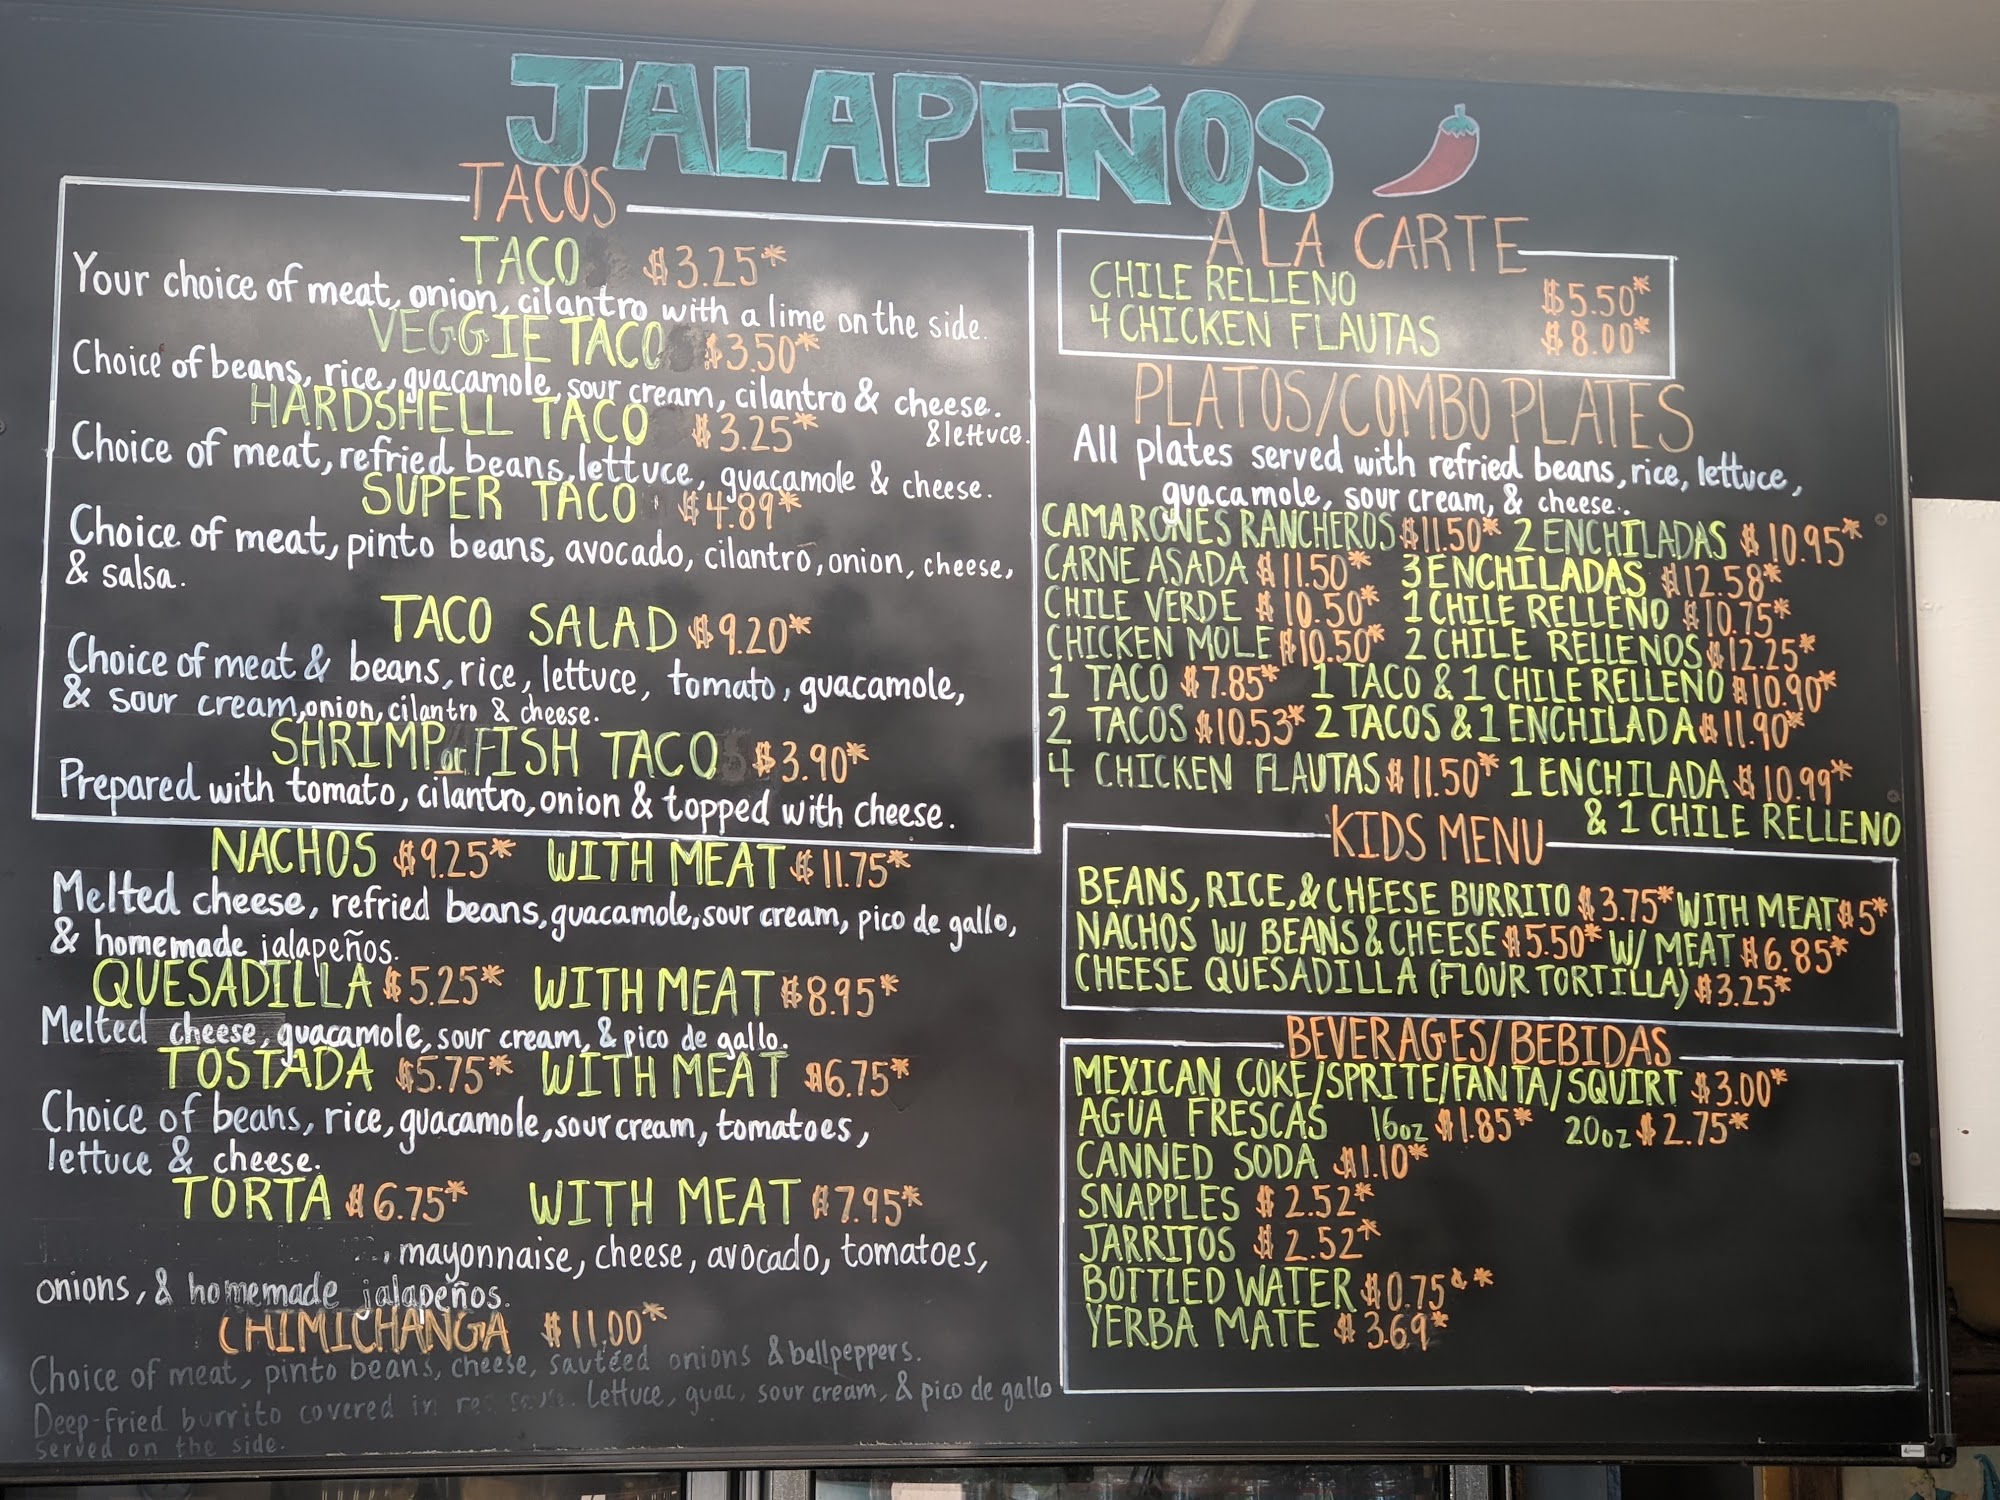 JALAPEÑOS
TACOS
TACO $3.25*
Your choice of meat, onion, cilantro with a lime on the side.
VEGGIE TACO $3.50*
Choice of beans, rice, guacamole, sour cream, cilantro & cheese.
& lettuce.
HARDSHELL TACO $3.25*
Choice of meat, refried beans, lettuce, guacamole & cheese.
SUPER TACO $4.89*
Choice of meat, pinto beans, avocado, cilantro, onion, cheese,
& salsa.
TACO SALAD $9.20*
Choice of meat & beans, rice, lettuce, tomato, guacamole,
& sour cream, onion, cilantro & cheese.
SHRIMP or FISH TACO $3.90*
Prepared with tomato, cilantro, onion & topped with cheese.
NACHOS $9.25* WITH MEAT $11.75*
Melted cheese, refried beans, guacamole, sour cream, pico de gallo,
& homemade jalapeños.
QUESADILLA $5.25* WITH MEAT $8.95*
Melted cheese, guacamole, sour cream, & pico de gallo.
TOSTADA $5.75* WITH MEAT $6.75*
Choice of beans, rice, guacamole, sour cream, tomatoes,
lettuce & cheese.
TORTA $6.75* WITH MEAT $7.95*
mayonnaise, cheese, avocado, tomatoes,
onions, & homemade jalapeños.
CHIMICHANGA $11.00*
Choice of meat, pinto beans, cheese, sautéed onions & bellpeppers.
Deep-fried burrito covered in Lettuce, guac, sour cream, & pico de gallo
served on the side.
A LA CARTE
CHILE RELLENO $5.50*
4 CHICKEN FLAUTAS $8.00*
PLATOS/COMBO PLATES
All plates served with refried beans, rice, lettuce,
guacamole, sour cream, & cheese.
CAMARONES RANCHEROS $11.50* 2 ENCHILADAS $10.95*
CARNE ASADA $11.50* 3 ENCHILADAS $12.58*
CHILE VERDE $10.50* 1 CHILE RELLENO $10.75*
CHICKEN MOLE $10.50* 2 CHILE RELLENOS $12.25*
1 TACO $7.85* 1 TACO & 1 CHILE RELLENO $10.90*
2 TACOS $10.53* 2 TACOS & 1 ENCHILADA $11.90*
4 CHICKEN FLAUTAS $11.50* 1 ENCHILADA $10.99*
& 1 CHILE RELLENO
KIDS MENU
BEANS, RICE, & CHEESE BURRITO $3.75* WITH MEAT $5*
NACHOS W/ BEANS & CHEESE $5.50* W/ MEAT $6.85*
CHEESE QUESADILLA (FLOUR TORTILLA) $3.25*
BEVERAGES/BEBIDAS
MEXICAN COKE/SPRITE/FANTA/SQUIRT $3.00*
AGUA FRESCAS 16oz $1.85* 20oz $2.75*
CANNED SODA $1.10*
SNAPPLES $2.52*
JARRITOS $2.52*
BOTTLED WATER $0.75 & *
YERBA MATE $3.69*